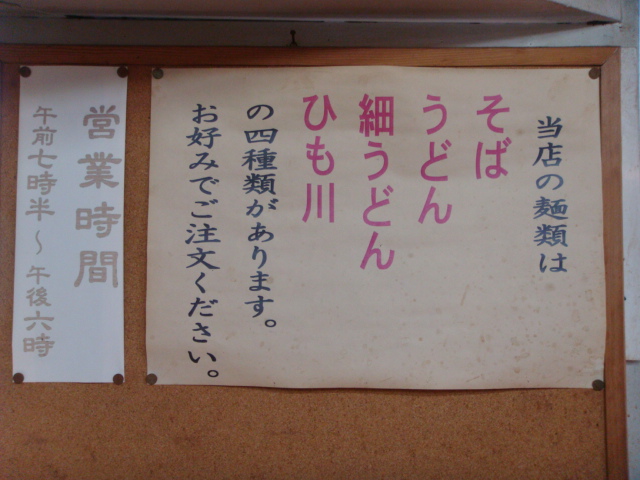 当店の麺類は
そば
うどん
細うどん
ひも川
の四種類があります。
お好みでご注文ください。
営業時間
午前七時半～午後六時